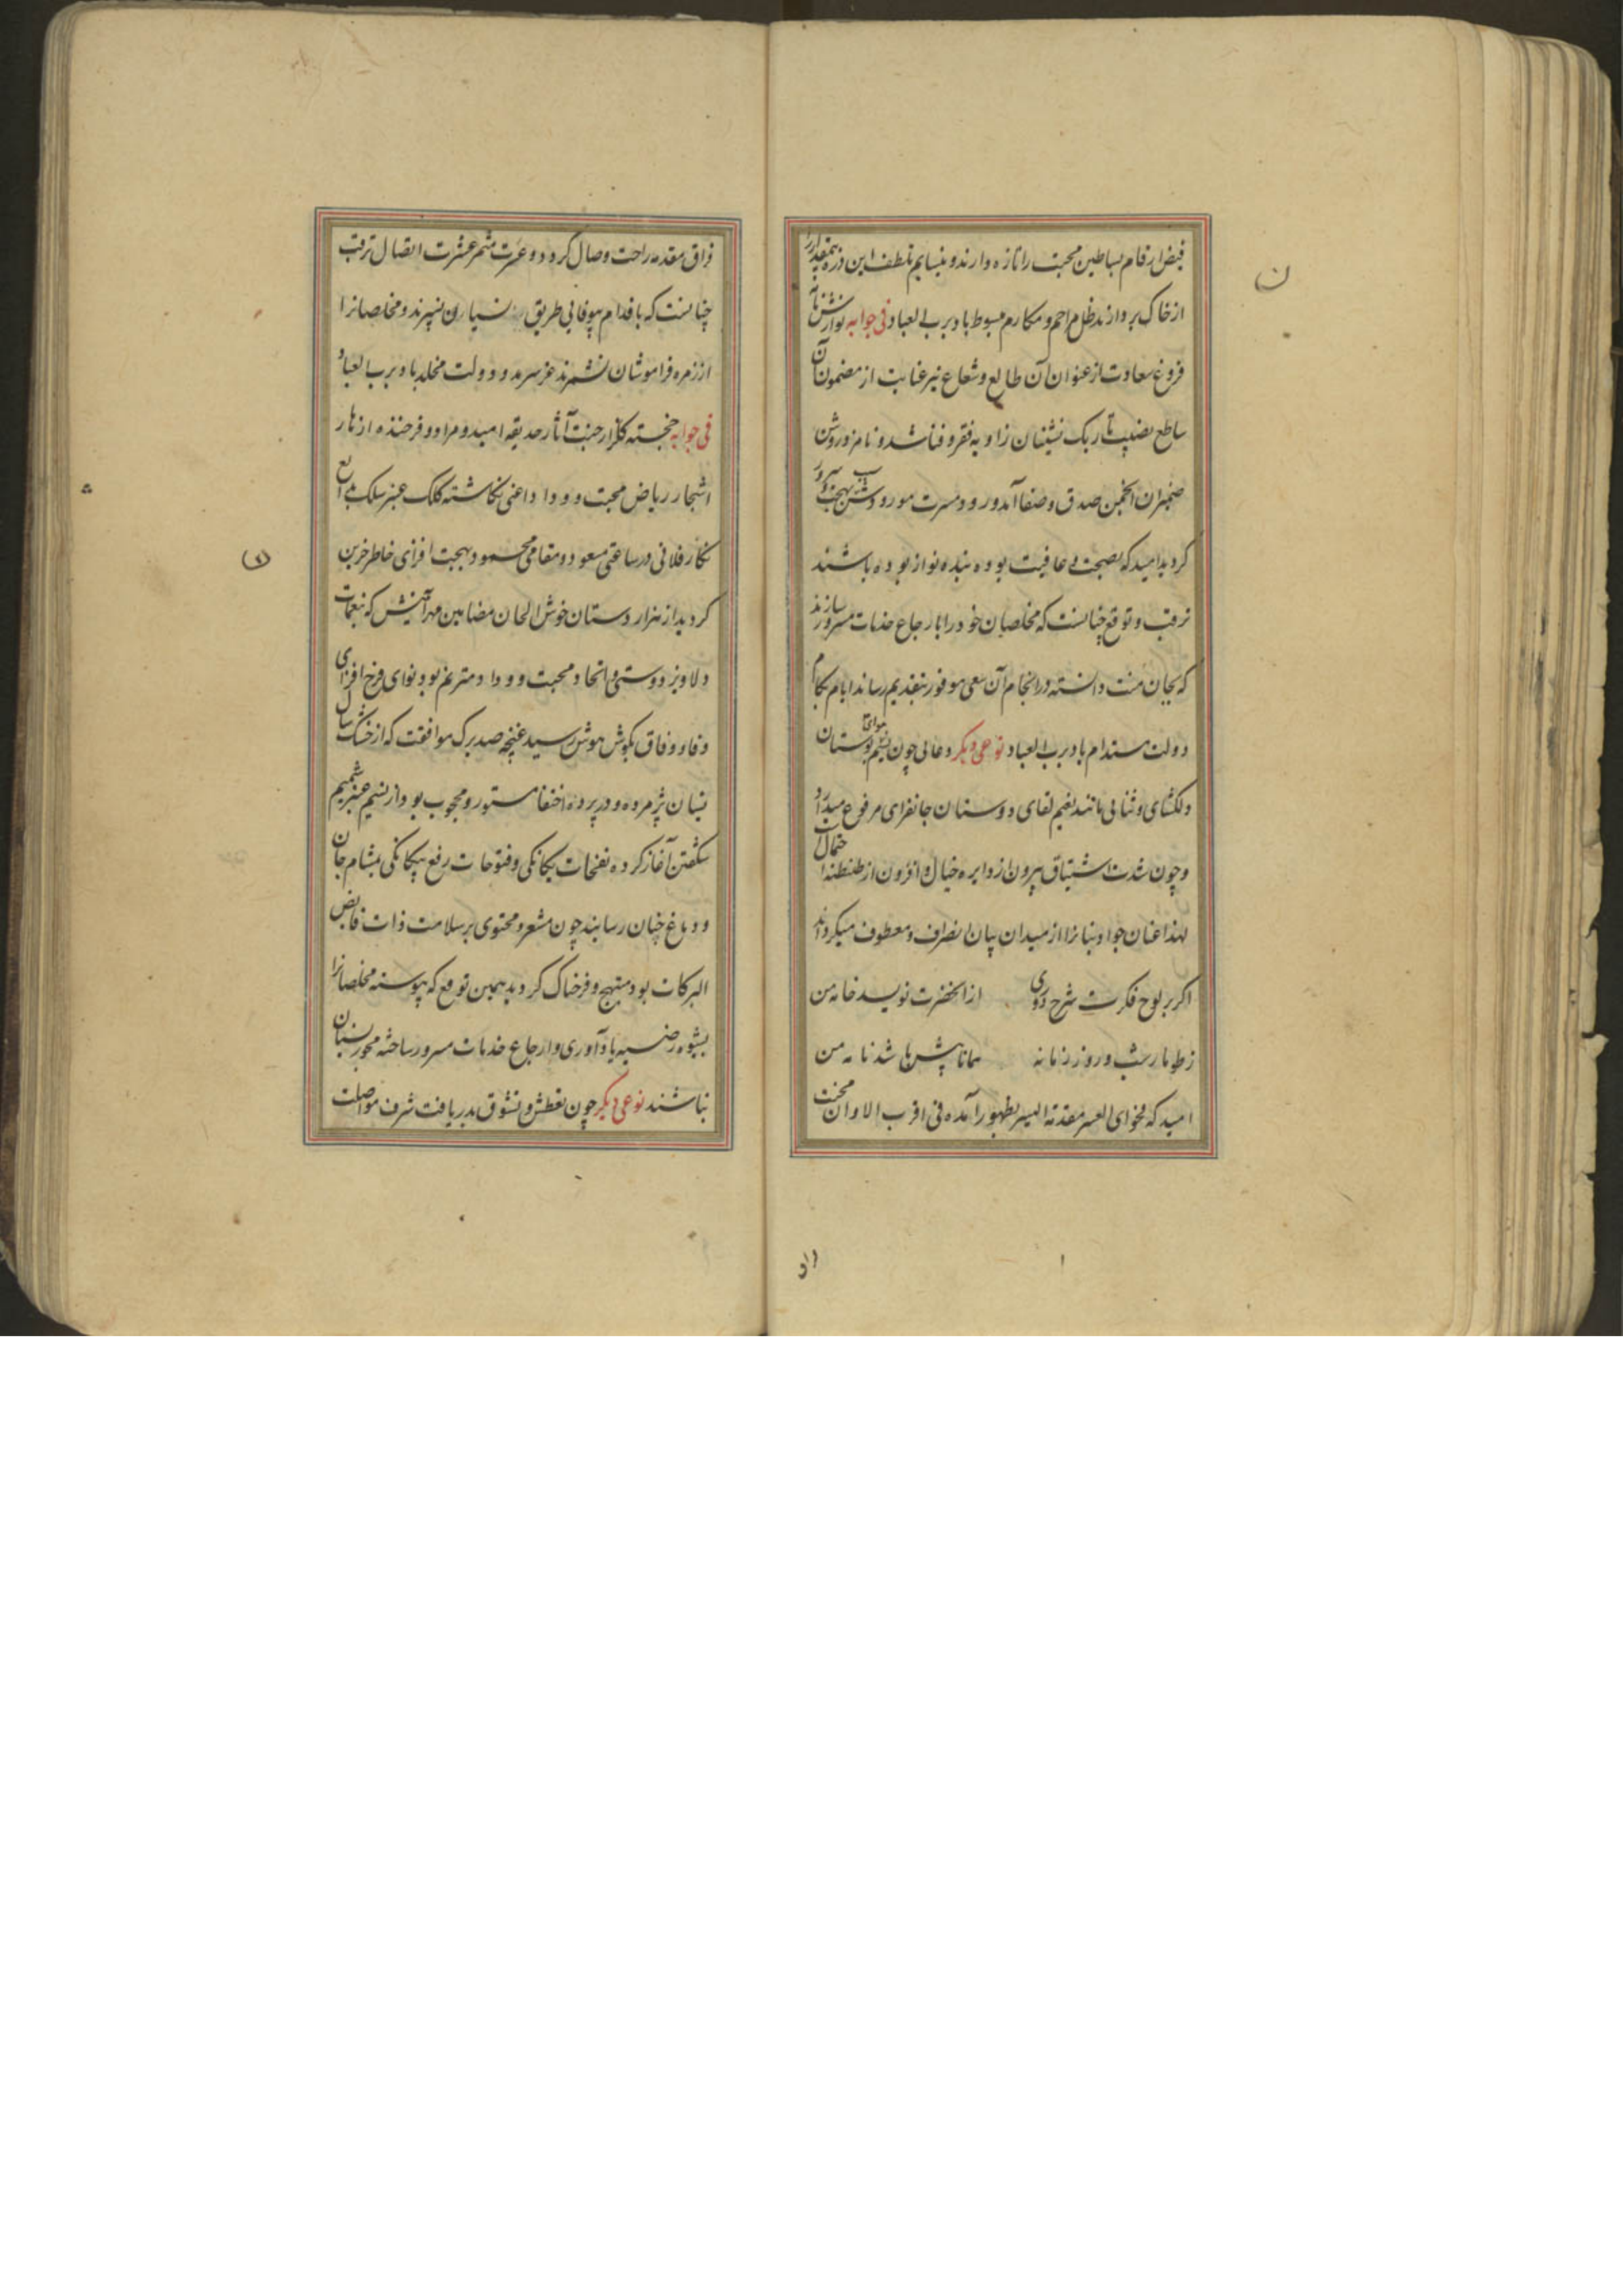 فیض ارقام بساطین محبت را تازه دارند و بنسایم تلطف این ذره بمقدار را
از خاک بردارند ظل مراحم و مکارم مبسوط باد برب العباد فی جوابه نوازش نامهٔ
فروغ سعادت از عنوان آن طالع و شعاع نیر عنایت از مضمون آن
ساطع نصیب تاریک نشینان زاویه فقر و فنا شد و نامزد روشن
ضمیران انجمن صدق و صفا آمد ورود مسرت مورودش سبب بهجت و سرور
کردید امید که بصحت و عافیت بوده بنده نواز بوده باشند
ترقب و توقع چنانست که مخلصان خود را بارجاع خدمات مسرور سازند
که بجان منت دانسته در انجام آن سعی موفور بتقدیم رساند ایام بکام
دولت مستدام باد برب العباد نوعی دیکر دعائی چون نسیم هوای بوستان
دلکشای و ثنایی مانند نعیم لقای دوستان جانفزای مرفوع میدارد
و چون شدت اشتیاق بیرون از دایره خیال و افزون از طنطنه احتمال
لهذا عنان جواد بنانرا از میدان بیان انصراف و معطوف میکرداند
اکر بر لوح فکرت شرح دوری از آنحضرت نویسد خامه من
ز طومار شب و روز زمانه همانا بیش باشد نامه من
امید که بفحوای العسر مقدمة الیسر بظهور آمده فی اقرب الاوان محنت
فراق مقدمه راحت وصال کردد و عسرت مثمر عشرت اتصال ترقب
چنانست که باقدام بیوفایی طریق نسیان نسپرند و مخلصانرا
از زمره فراموشان نشمرند عز سرمد و دولت مخلد باد برب العباد
فی جوابه خجسته کلزار جنت آثار حدیقه امید و مراد و فرخنده ازهار
اشجار ریاض محبت و وداد اعنی نکاشته کلک عنبر سلک بدایع
نکار فلانی در ساعتی مسعود و مقامی محمود بهجت افزای خاطر حزین
کردید از هزار دستان خوش الحان مضامین مهر آمیزش که بنغمات
دلاویز دوستی و اتحاد و محبت و وداد مترنم بود نوای فرح افزای
وفا و وفاق بکوش هوش رسید غنچه صد برک موافقت که از خشک سال
نسیان پژمرده و در پرده اختفا مستور و محجوب بود از نسیم عنبر شمیم
شکفتن آغاز کرده نفحات یکانکی و فتوحات رفع بیکانکی بمشام جان
و دماغ جنان رسانید چون مشعر و محتوی بر سلامت ذات فایض
البرکات بود مبتهج و فرحناک کردید بهمین توقع که پیوسته مخلصانرا
بشیوه رضیه یادآوری و ارجاع خدمات مسرور ساخته مجوز نسیان
نباشند نوعی دیکر چون تعطش و تشوق بدریافت شرف مواصلت